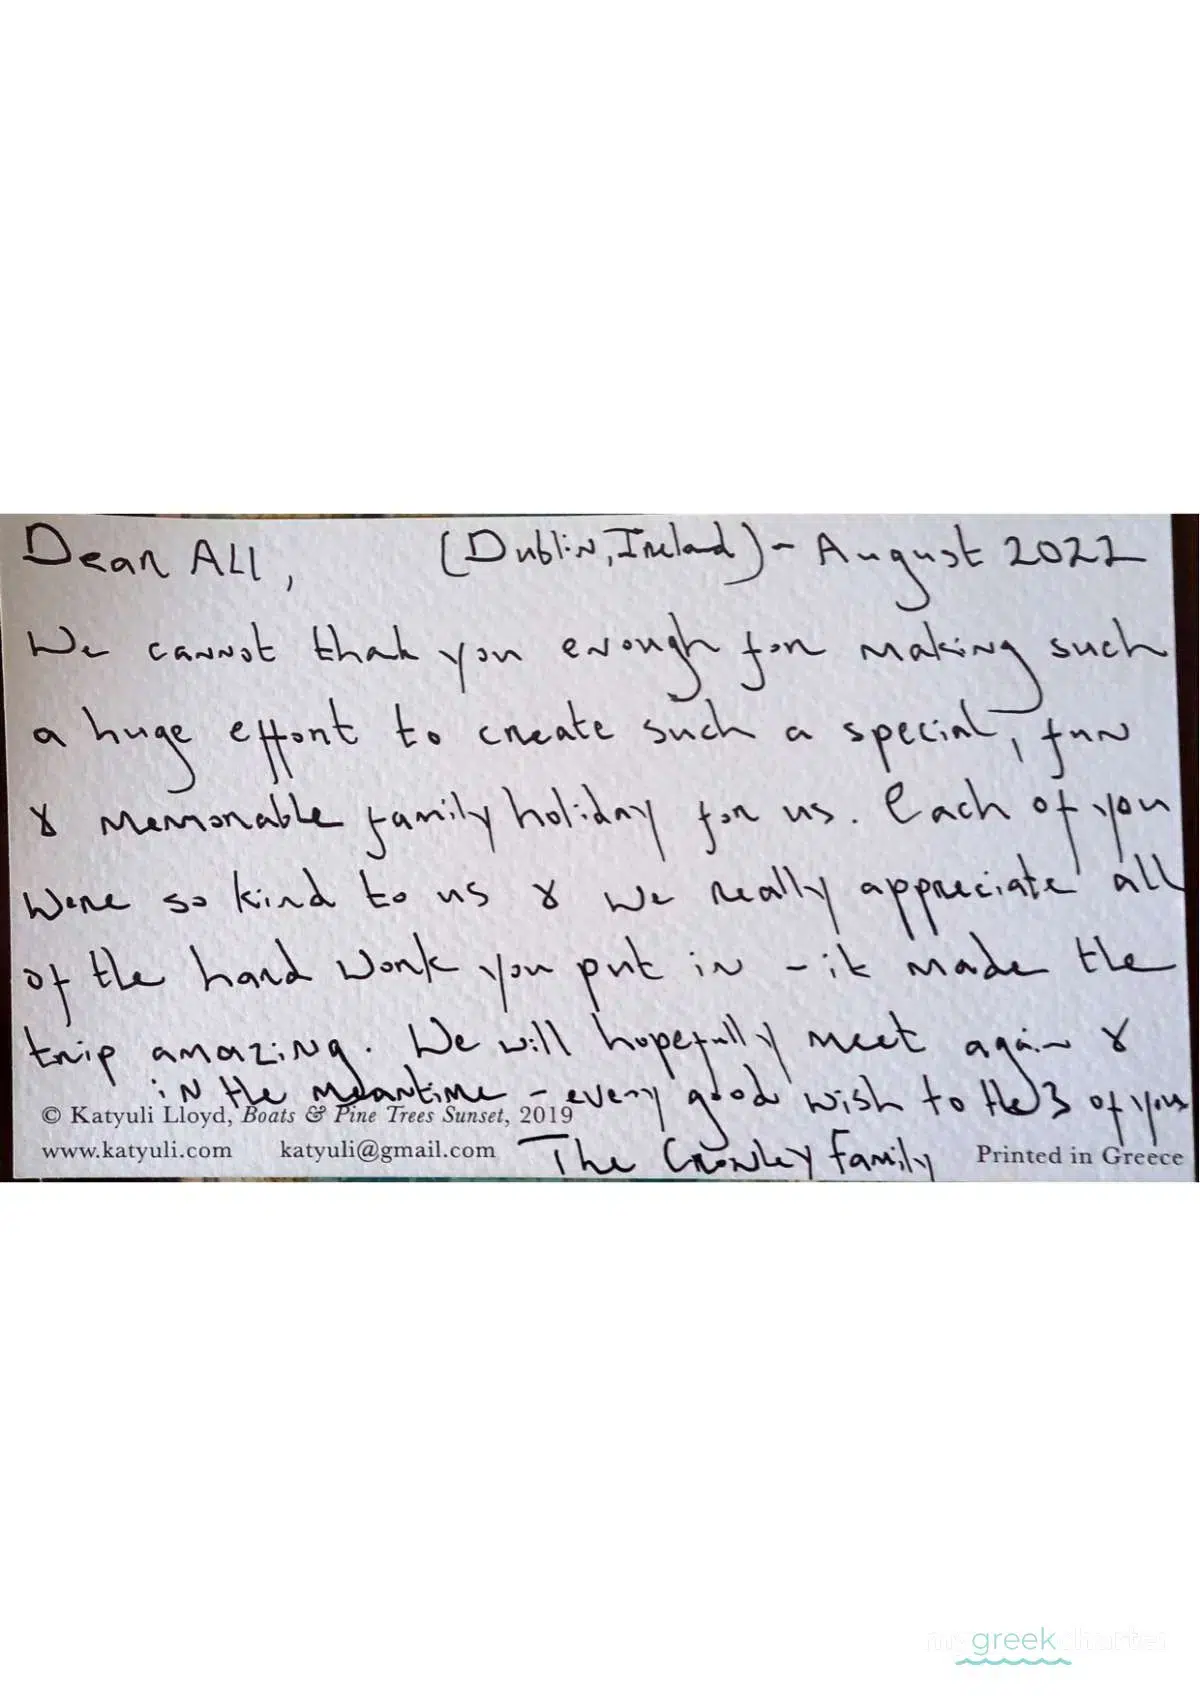 Dear All, (Dublin, Ireland) - August 2022
We cannot thank you enough for making such
a huge effort to create such a special, fun
& memorable family holiday for us. Each of you
were so kind to us & we really appreciate all
of the hard work you put in - it made the
trip amazing. We will hopefully meet again &
in the meantime - every good wish to the 3 of you
© Katyuli Lloyd, Boats & Pine Trees Sunset, 2019
www.katyuli.com katyuli@gmail.com The Crowley Family Printed in Greece
my greek charter